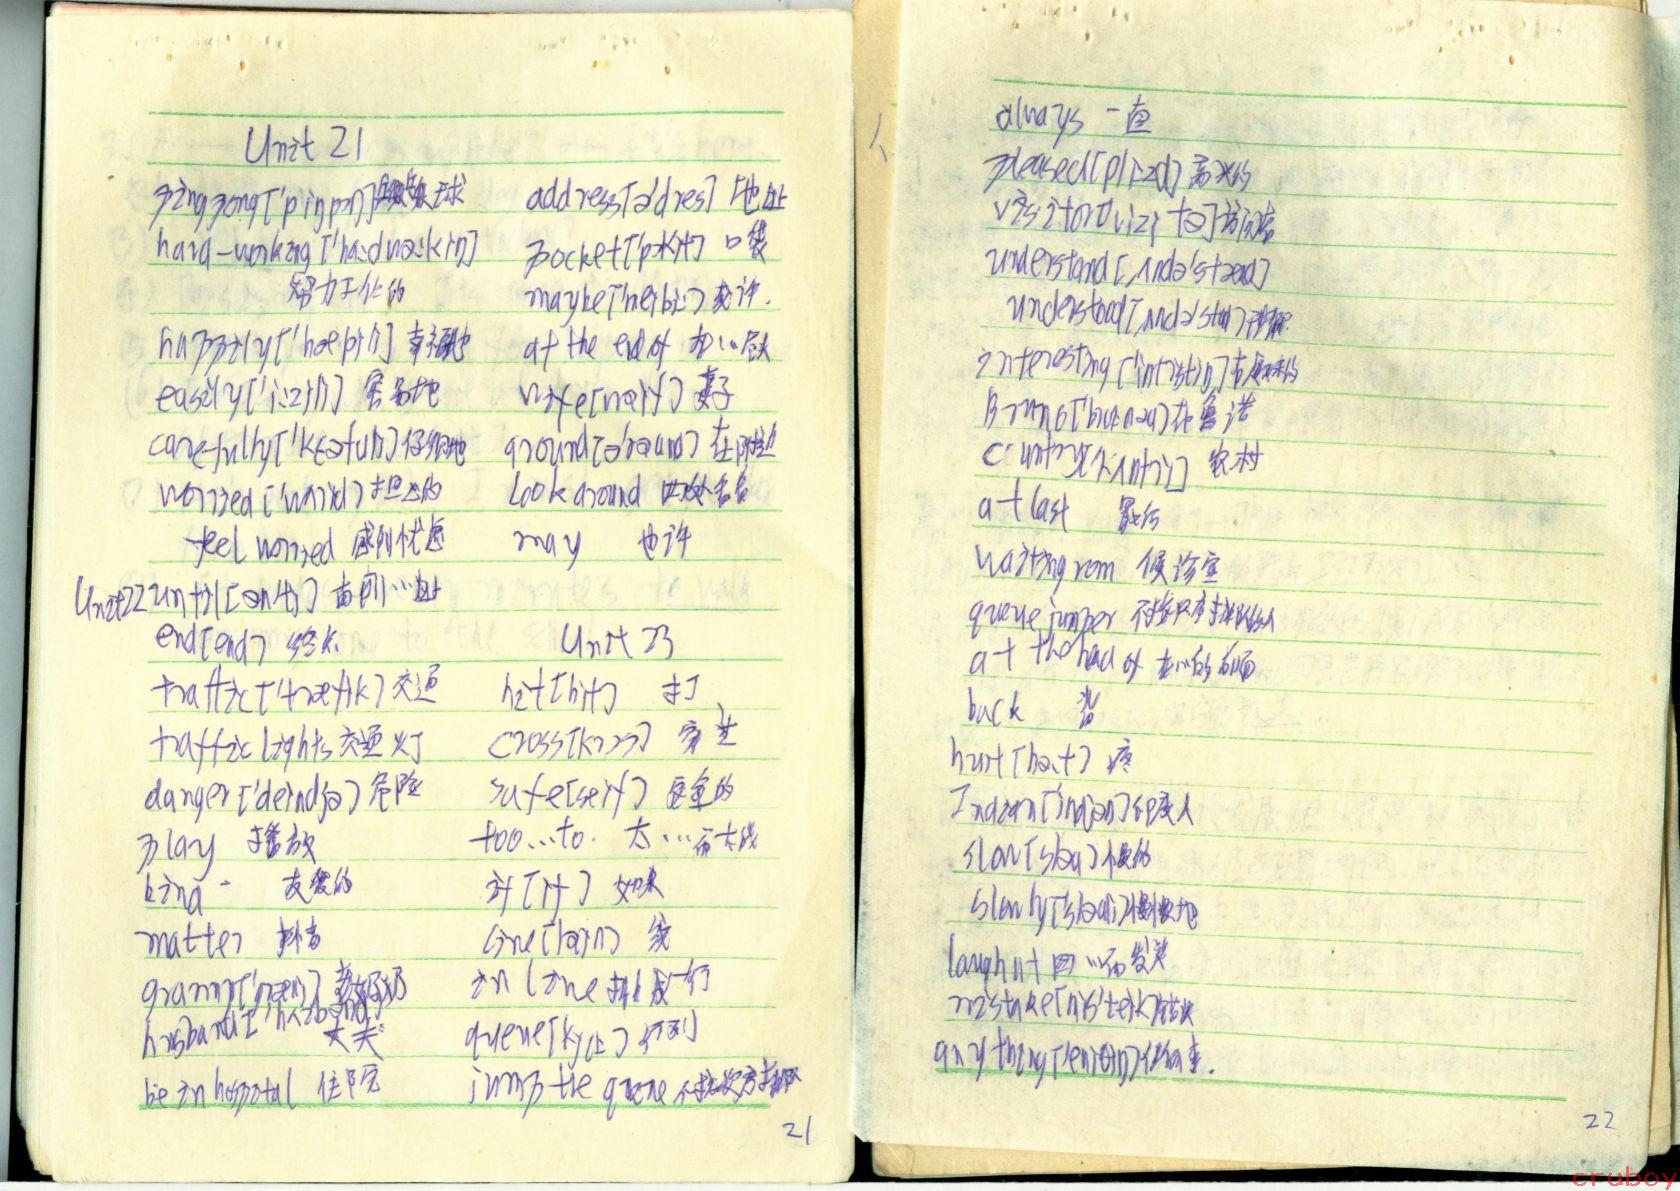 Unit 21
pingpong ['piŋpɔŋ] 乒乓球
hard-working ['ha:dwə:kiŋ]
努力工作的
happily ['hæpili] 幸福地
easily ['i:zili] 容易地
carefully ['kεəfuli] 仔细地
worried ['wʌrid] 担心的
feel worried 感到忧虑
Unit22 until [ən'til] 直到…为止
end [end] 终点
traffic ['træfik] 交通
traffic lights 交通灯
danger ['deindʒə] 危险
play 播放
kind 友爱的
matter
granny ['græni]
husband ['hʌzbənd] 丈夫
be in hospital 住院
address [ə'dres] 地址
pocket ['pɔkit] 口袋
maybe ['meibi:] 或许.
at the end of 在…尽头
wife [waif] 妻子
around [ə'raund] 在附近
look around 四处看看
may 也许
Unit 23
hit [hit] 打
cross [krɔs] 穿过
safe [seif] 安全的
too...to. 太…而不能
if [if] 如果
line [lain] 线
in line 排成一行
queue [kju:] 行列
jump the queue 不按次序排队
21
always 一直
pleased [pli:zd] 高兴的
visitor ['vizitə] 访问者
understand [,ʌndə'stænd]
understood [,ʌndə'stud] 理解
interesting ['intristiŋ] 有趣味的
Bruno ['bru:nəu] 布鲁诺
country ['kʌntri] 农村
at last 最后
waiting room 候诊室
queue jumper 不按次序排队的人
at the head of 在…的前面
back 背
hurt [hə:t] 疼
Indian ['indjən] 印度人
slow [sləu] 慢的
slowly ['sləuli] 慢慢地
laugh at 因…而发笑
mistake [mis'teik] 错误
anything ['eniθiŋ] 任何事.
22
cruboy